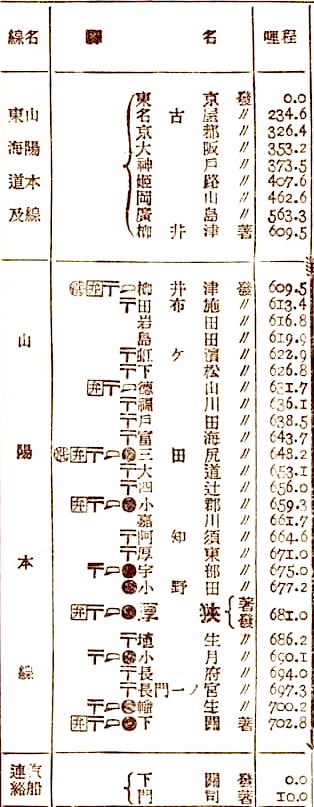 線名 驛名 哩程
東海道及山陽本線
東京 發 0.0
名古屋 〃 234.6
京都 〃 326.4
大阪 〃 353.2
神戶 〃 373.5
姬路 〃 407.6
岡山 〃 462.6
廣島 〃 563.3
柳井津 著 609.5
山陽本線
弁〒 柳井津 發 609.5
〒田布施 〃 613.4
岩田 〃 616.8
島田 〃 619.9
〒虹ヶ濱 〃 622.9
〒下松 〃 626.8
弁〒 德山 〃 631.7
〒福川 〃 636.1
〒戶田 〃 638.5
〒富海 〃 643.7
弁〒 三田尻 〃 648.2
〒大道 〃 653.1
〒四辻 〃 656.0
弁〒 小郡 〃 659.3
嘉川 〃 661.7
〒阿知須 〃 664.6
〒厚東 〃 671.0
〒 宇部 〃 675.0
小野田 〃 677.2
弁〒 厚狹 著發 681.0
〒埴生 〃 686.2
〒 小月 〃 690.1
〒長府 〃 694.0
〒長門一ノ宮 〃 697.3
〒 幡生 〃 700.2
弁〒 下關 著 702.8
汽船連絡
下關 發 0.0
門司 著 10.0